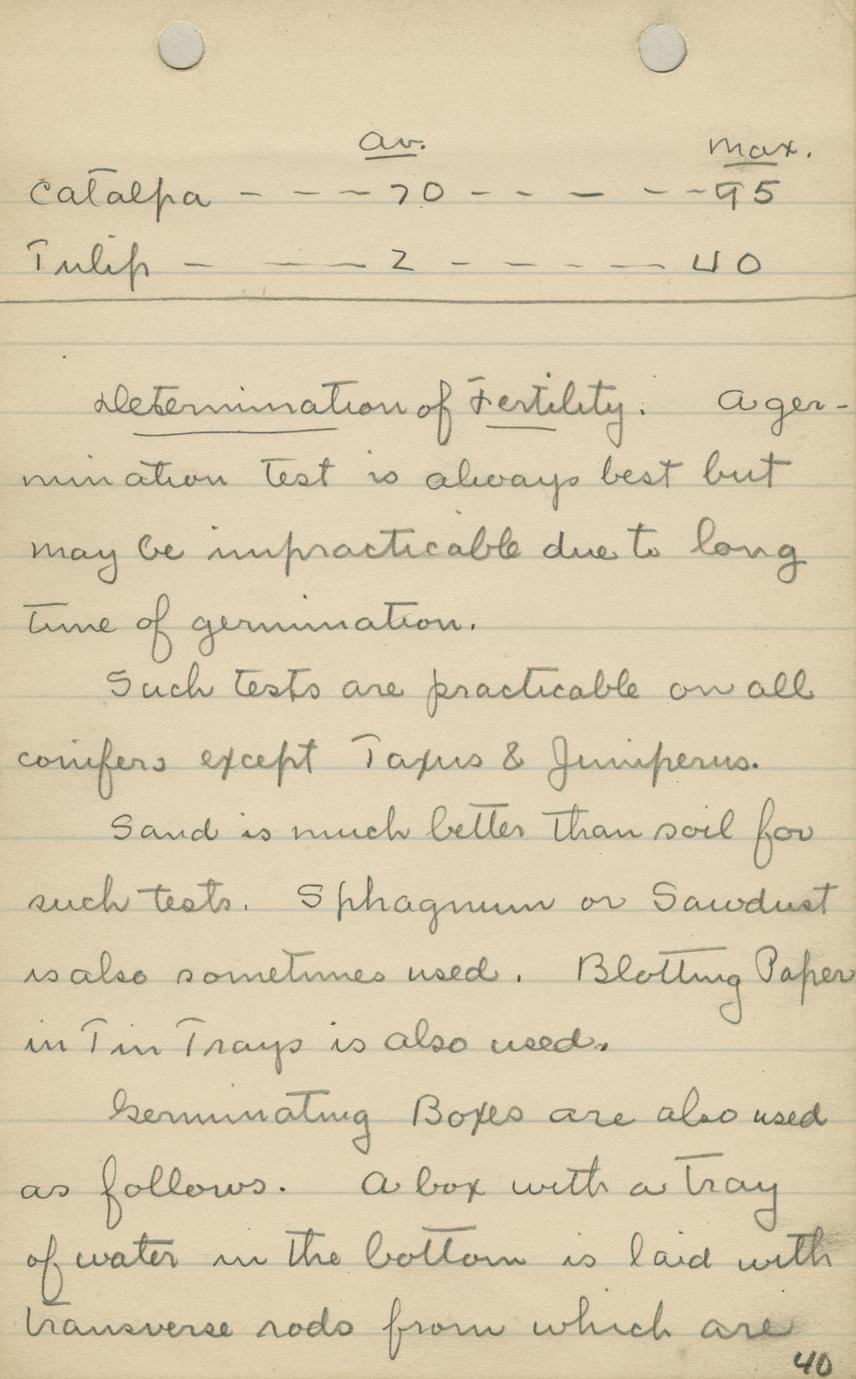 av. max.
Catalpa - - - 70 - - - - - 95
Tulip - - - 2 - - - - - 40
Determination of Fertility. A ger-
mination test is always best but
may be impracticable due to long
time of germination.
Such tests are practicable on all
conifers except Taxus & Juniperus.
Sand is much better than soil for
such tests. Sphagnum or Sawdust
is also sometimes used. Blotting Paper
in Tin Trays is also used.
Germinating Boxes are also used
as follows. A box with a tray
of water in the bottom is laid with
transverse rods from which are
40